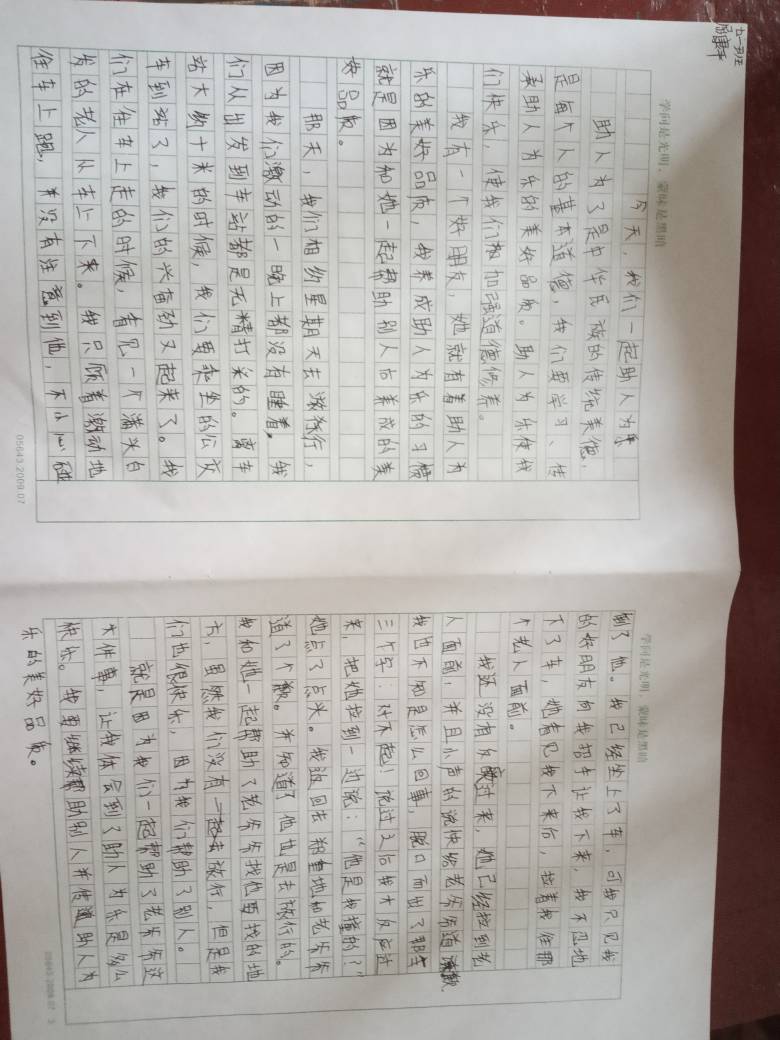 七一班
学问是光明，蒙昧是黑暗
今天，我们一起助人为乐
助人为了是中华民族的传统美德，
是每个人的基本道德，我们要学习、传
承助人为乐的美好品质。助人为乐使我
们快乐，使我们加强道德修养。
我有一个好朋友，她就有着助人为
乐的美好品质，我养成助人为乐的习惯
就是因为和她一起帮助别人后养成的美
好品质。
那天，我们相约星期天去旅行，
因为我们激动的一晚上都没有睡着，我
们从出发到车站都是无精打采的。离车
站大约十米的时候，我们要乘坐的公交
车到站了，我们的兴奋劲又起来了。我
们在往车上走的时候，看见一个满头白
发的老人从车上下来。我只顾着激动地
往车上跑，并没有注意到他，不小心碰
05643.2009.07
学问是光明，蒙昧是黑暗
倒了他。我已经坐上了车，可我只见我
的好朋友向我招手让我下来，我不忍地
下了车，她看见我下来后，拉着我往那
个老人面前。
我还没有反应过来，她已经拉到老
人面前，并且小声的说快给老爷爷道歉
我也不知是怎么回事，脱口而出了那
三个字：对不起！说过之后我才反应过
来，把她拉到一边说：“他是我撞的？”
她点了点头。我返回去郑重地和老爷爷
道了个歉。并知道了他也是去旅行的。
我和她一起帮助了老爷爷找他要找的地
方，虽然我们没有一起去旅行，但是我
们也很快乐，因为我们帮助了别人。
就是因为我们一起帮助了老爷爷这
件事，让我体会到了助人为乐是多么
快乐。我要继续帮助别人并传递助人为
乐的美好品质。
05643.2009.07